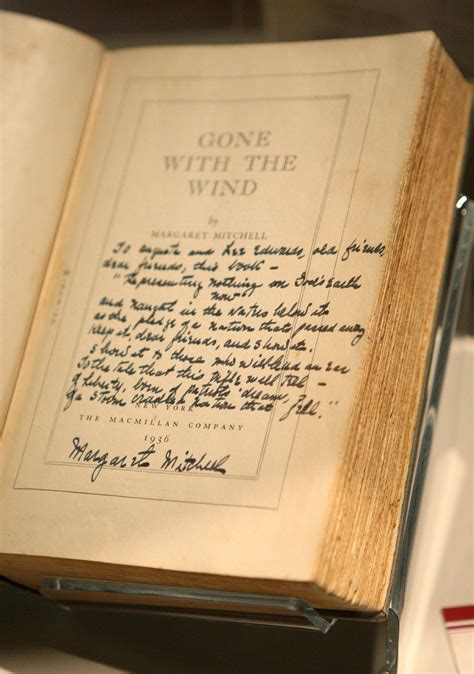 GONE
WITH THE
WIND
by
MARGARET MITCHELL
To Auguste and Lee Edwards, old friends,
dear friends, this book —
"Representing nothing on God's earth
now
and naught in the waters below it
as the pledge of a nation that passed away
Keep it, dear friends, and show it.
Show it to those who will lend an ear
To the tale that this trifle will tell —
of Liberty, born of patriots' dream,
of a storm cradled nation that fell."
NEW YORK
THE MACMILLAN COMPANY
1936
Margaret Mitchell